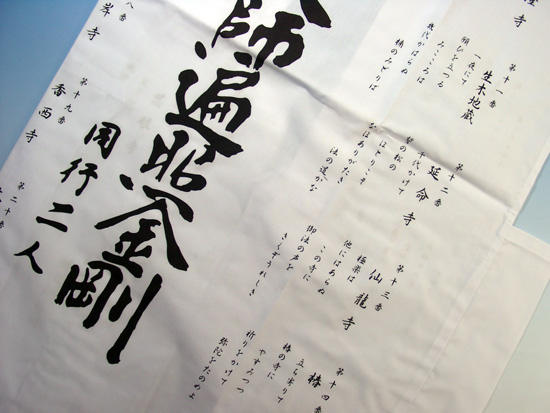 第十一番
生木地蔵
一夜にて
願ひを立つる
みこころは
幾代かはらぬ
楠のみどりば
第十二番
延命寺
千代かけて
誓の松の
ほとりこそ
なほありがたき
法の道かな
第十三番
仙龍寺
極楽は
他にはあらぬ
この寺に
御法の声を
きくぞうれしき
第十四番
椿
立ち寄りて
椿の寺に
やすみつつ
祈りをかけて
弥陀をたのめよ
師遍照金剛
同行二人
八番
岸寺
第十九番
香西寺
第二十番